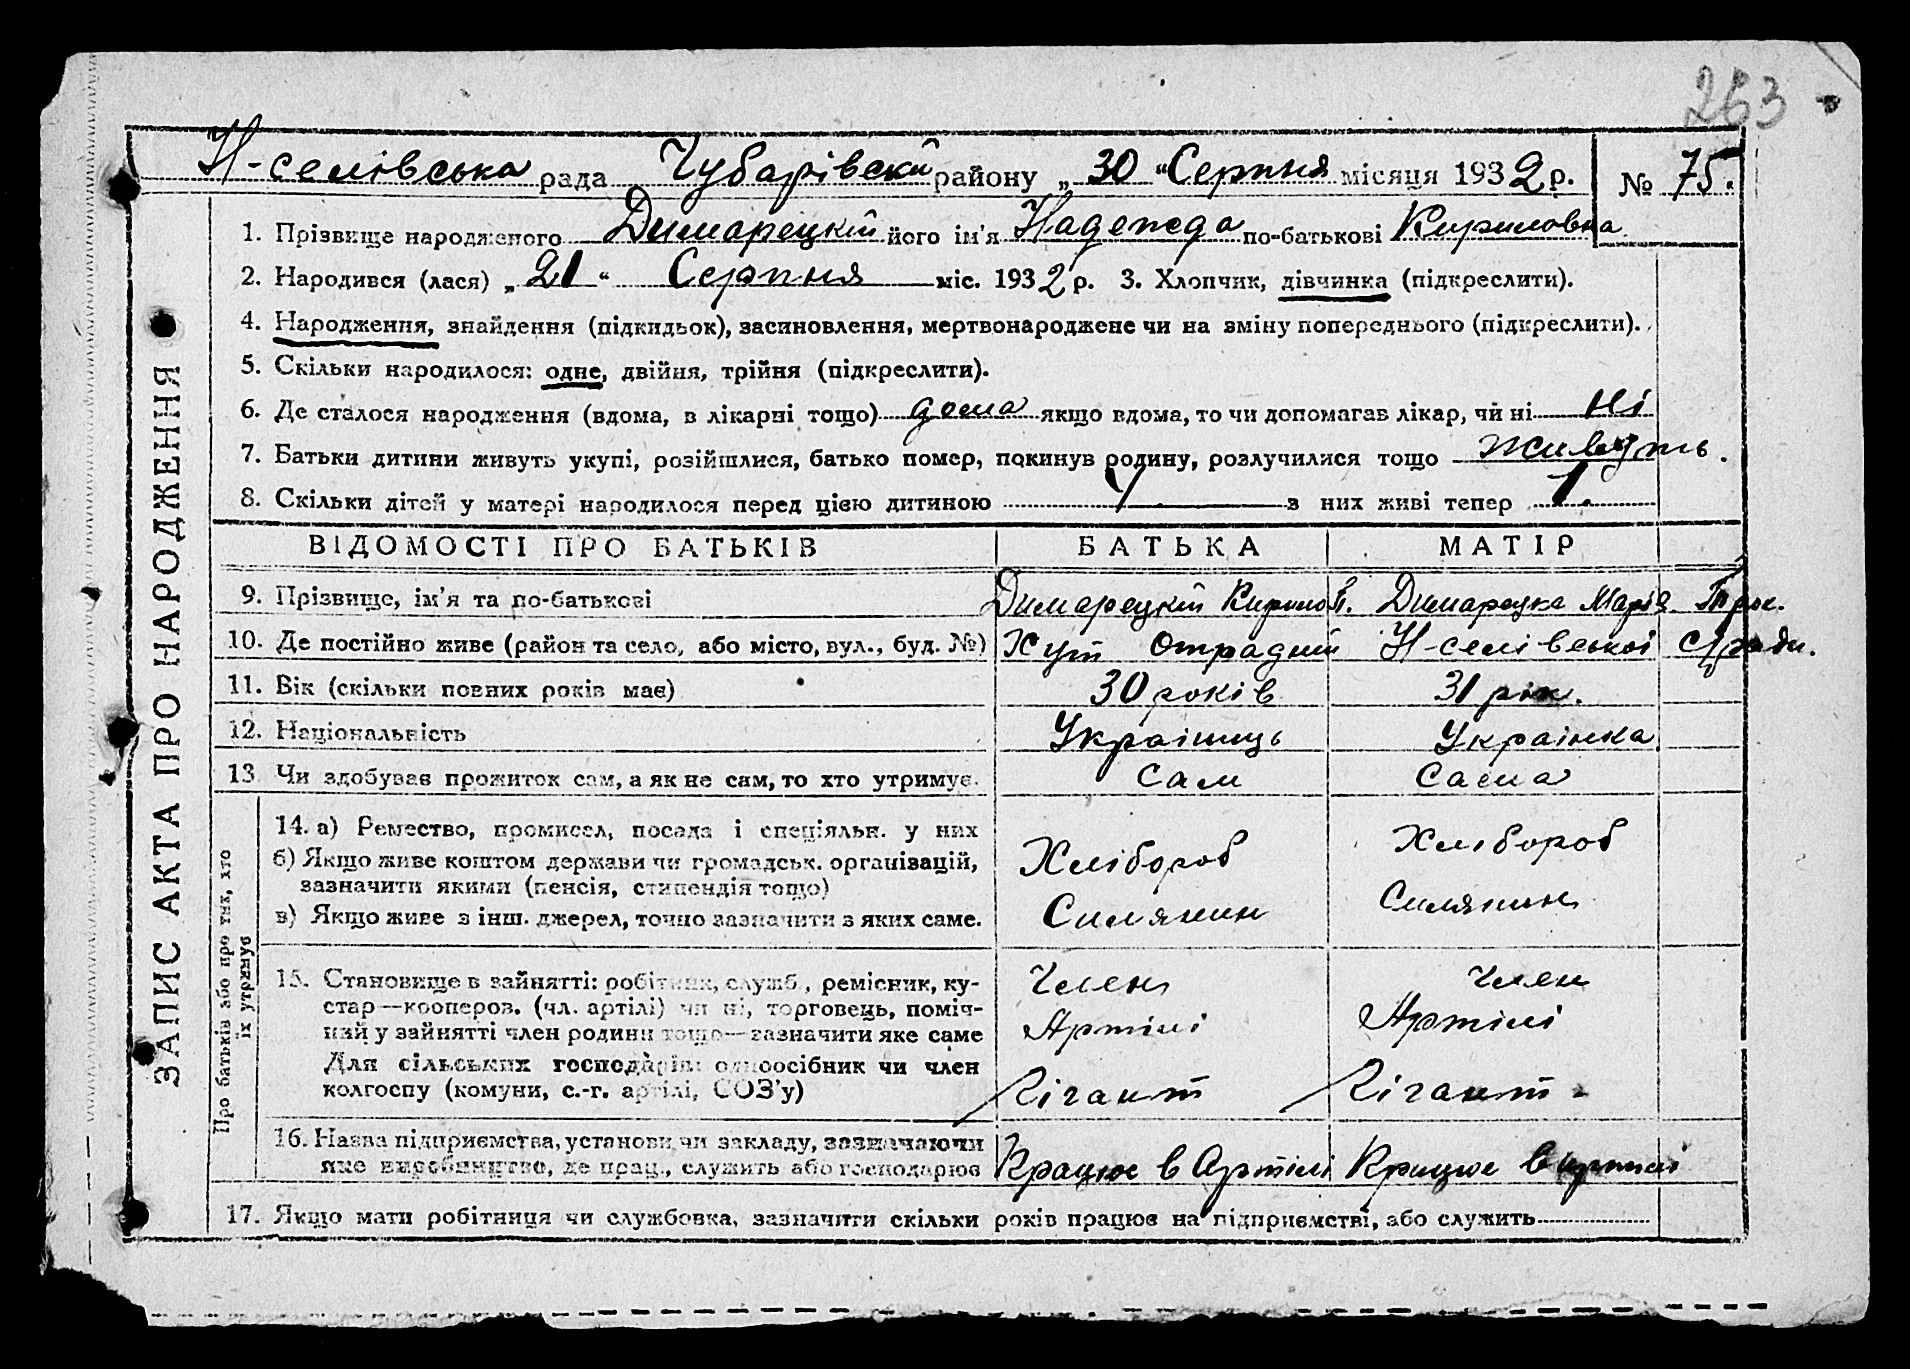 263
Н-селівська рада Чубарівськ району „ 30 “ Серпня місяця 1932 р. № 75.
1. Прізвище народженого Димарецкій його ім'я Надежда по-батькові Кириловна
2. Народився (лася) „ 21 “ Серпня міс. 1932 р. 3. Хлопчик, дівчинка (підкреслити).
4. Народження, знайдення (підкидьок), засиновлення, мертвонароджене чи на зміну попереднього (підкреслити).
5. Скільки народилося: одне, двійня, трійня (підкреслити).
6. Де сталося народження (вдома, в лікарні тощо) дома якщо вдома, то чи допомагав лікар, чи ні ні
7. Батьки дитини живуть укупі, розійшлися, батько помер, покинув родину, розлучилися тощо живуть.
8. Скільки дітей у матері народилося перед цією дитиною з них живі тепер 1.
ВІДОМОСТІ ПРО БАТЬКІВ БАТЬКА МАТІР
9. Прізвище, ім'я та по-батькові Димарецкій Кирило Димарецка Марія
10. Де постійно живе (район та село, або місто, вул., буд. №) Хут Отрадний Н-селівської с/ради.
11. Вік (скільки повних років має) 30 років 31 рік.
12. Національність Украінець Украінка
13 Чи здобував прожиток сам, а як не сам, то хто утримує. Сам Сама
14. а) Ремество, промисел, посада і спеціяльн. у них
б) Якщо живе коштом держави чи громадськ. організацій,
зазначити якими (пенсія, стипендія тощо)
в) Якщо живе з інш. джерел, точно зазначити з яких саме.
Хлібороб
Силянин
Хлібороб
Силянин
15. Становище в зайнятті: робітник, служб., ремісник, ку-
стар—кооперов. (чл. артілі) чи ні, торговець, поміч-
ний у зайнятті член родини тощо—зазначити яке саме
Для сільських господарів: одноосібник чи член
колгоспу (комуни, с.-г. артілі, СОЗ'у)
Член
Артілі
Гігант
Член
Артілі
Гігант
16. Назва підприємства, установи чи закладу, зазначаючи
яке виробництво, де прац., служить або господарює
Працює в Артілі Працює в артілі
17. Якщо мати робітниця чи службовка, зазначити скільки років працює на підприємстві, або служить
ЗАПИС АКТА ПРО НАРОДЖЕННЯ
Про батьків або про тих, хто
їх утримує